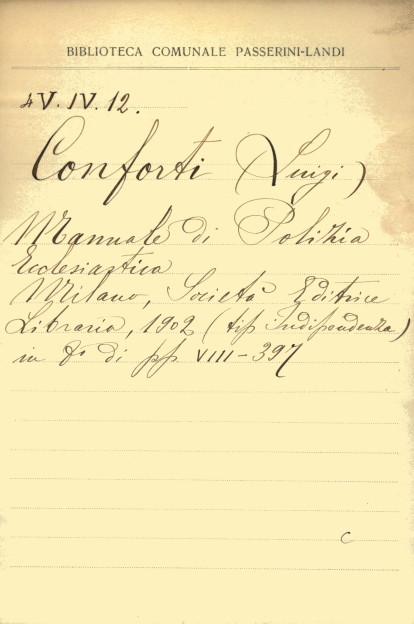 BIBLIOTECA COMUNALE PASSERINI-LANDI
4V.IV.12.
Conforti (Luigi)
Manuale di Polizia
Ecclesiastica
Milano, Società Editrice
Libraria, 1902 (tip Indipendenza)
in 8° di pp VIII-397
C